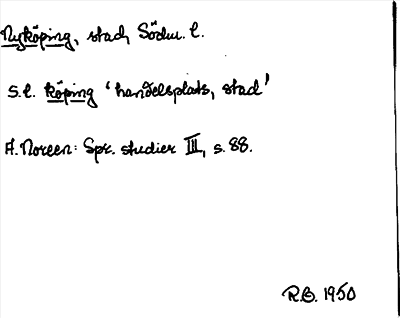 Nyköping, stad, Södm. l.
s.l. köping 'handelsplats, stad'
A. Noreen: Spr. studier III, s. 88.
R.B. 1950